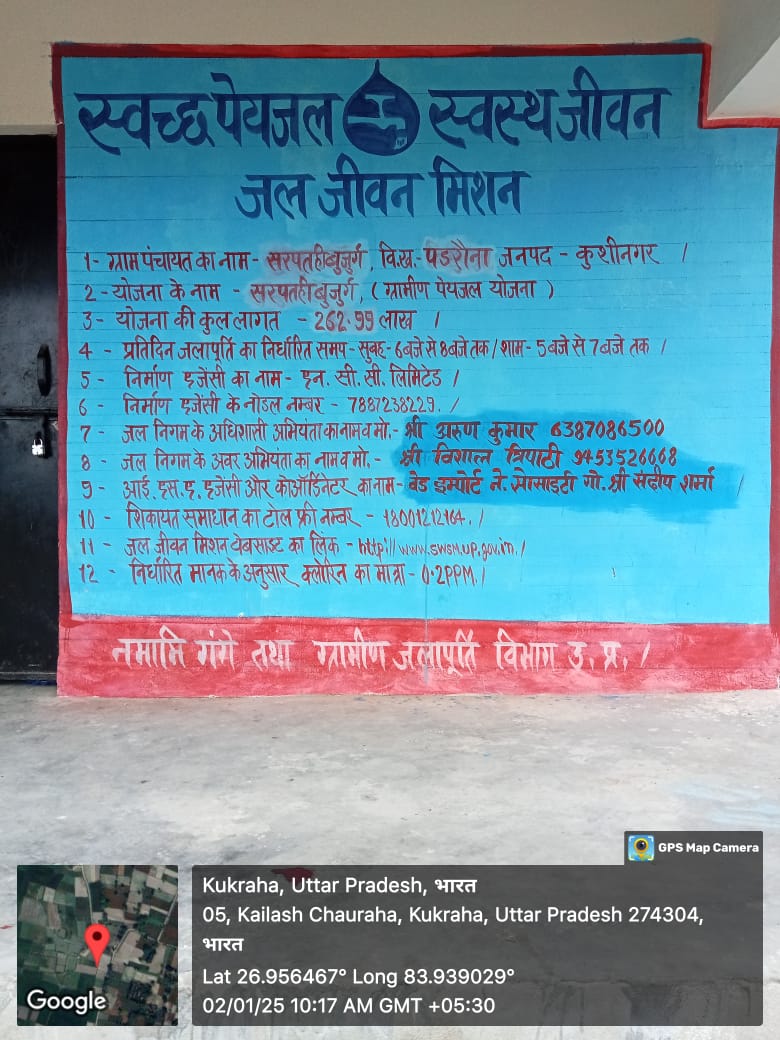 स्वच्छ पेयजल स्वस्थ जीवन
जल जीवन मिशन
1- ग्राम पंचायत का नाम - सरपतही बुजुर्ग, वि.ख.- पडरौना जनपद - कुशीनगर ।
2- योजना के नाम - सरपतही बुजुर्ग, ( ग्रामीण पेयजल योजना )
3- योजना की कुल लागत - 262.99 लाख ।
4 - प्रतिदिन जलापूर्ति का निर्धारित समय - सुबह - 6 बजे से 8 बजे तक / शाम - 5 बजे से 7 बजे तक ।
5 - निर्माण एजेंसी का नाम - एन. सी. सी. लिमिटेड ।
6 - निर्माण एजेंसी के नोडल नम्बर - 7887238229. ।
7 - जल निगम के अधिशासी अभियंता का नाम व मो. - श्री अरुण कुमार 6387086500
8 - जल निगम के अवर अभियता का नाम व मो. - श्री विशाल त्रिपाठी 9453526668
9 - आई. एस. ए. एजेंसी और कोऑर्डिनेटर का नाम - वेड इम्पोर्ट ने. सोसाइटी गो. श्री संदीप शर्मा ।
10 - शिकायत समाधान का टोल फ्री नम्बर - 18001212164. ।
11 - जल जीवन मिशन वेबसाइट का लिंक - http://www.swsm.up.gov.in. ।
12 - निर्धारित मानक के अनुसार क्लोरिन का मात्रा - 0.2PPM. ।
नमामि गंगे तथा ग्रामीण जलापूर्ति विभाग उ. प्र. ।
GPS Map Camera
Kukraha, Uttar Pradesh, भारत
05, Kailash Chauraha, Kukraha, Uttar Pradesh 274304,
भारत
Lat 26.956467° Long 83.939029°
02/01/25 10:17 AM GMT +05:30
Google